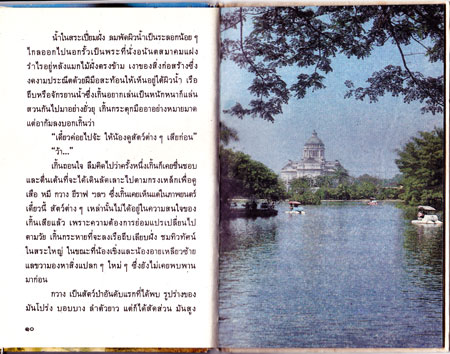 น้ำในสระเปี่ยมฝั่ง ลมพัดผิวน้ำเป็นระลอกน้อย ๆ
ไกลออกไปนอกรั้วเป็นพระที่นั่งอนันตสมาคมแฝง
รำไรอยู่หลังแมกไม้ฝั่งตรงข้าม เงาของสิ่งก่อสร้างซึ่ง
งดงามประณีตด้วยฝีมือสะท้อนให้เห็นอยู่ใต้ผิวน้ำ เรือ
ถีบหรือจักรยานน้ำซึ่งเก็นอยากเล่นเป็นหนักหนาก็แล่น
สวนกันไปมาอย่างยั่วยุ เก็นกระตุกมืออาอย่างหมายมาด
แต่อาก้มลงบอกเก็นว่า
"เดี๋ยวค่อยไปจ้ะ ให้น้องดูสัตว์ต่าง ๆ เสียก่อน"
"ว้า..."
เก็นอ่อนใจ ลืมคิดไปว่าครั้งหนึ่งเก็นก็เคยชื่นชอบ
และตื่นเต้นที่จะได้เดินลัดเลาะไปตามกรงเหล็กเพื่อดู
เสือ หมี กวาง ยีราฟ ฯลฯ ซึ่งเก็นเคยเห็นแต่ในภาพยนตร์
เดี๋ยวนี้ สัตว์ต่าง ๆ เหล่านั้นไม่ได้อยู่ในความสนใจของ
เก็นเสียแล้ว เพราะความต้องการย่อมแปรเปลี่ยนไป
ตามวัย เก็นกระหายที่จะลงเรือถีบเลียบฝั่ง ชมทิวทัศน์
ในสระใหญ่ ในขณะที่น้องเชิ่งและน้องอายเหลียวซ้าย
แลขวามองหาสิ่งแปลก ๆ ใหม่ ๆ ซึ่งยังไม่เคยพบพาน
มาก่อน
กวาง เป็นสัตว์ป่าอันดับแรกที่ได้พบ รูปร่างของ
มันโปร่ง บอบบาง ลำตัวยาว แต่ก็ได้สัดส่วน มันสูง
๑๐